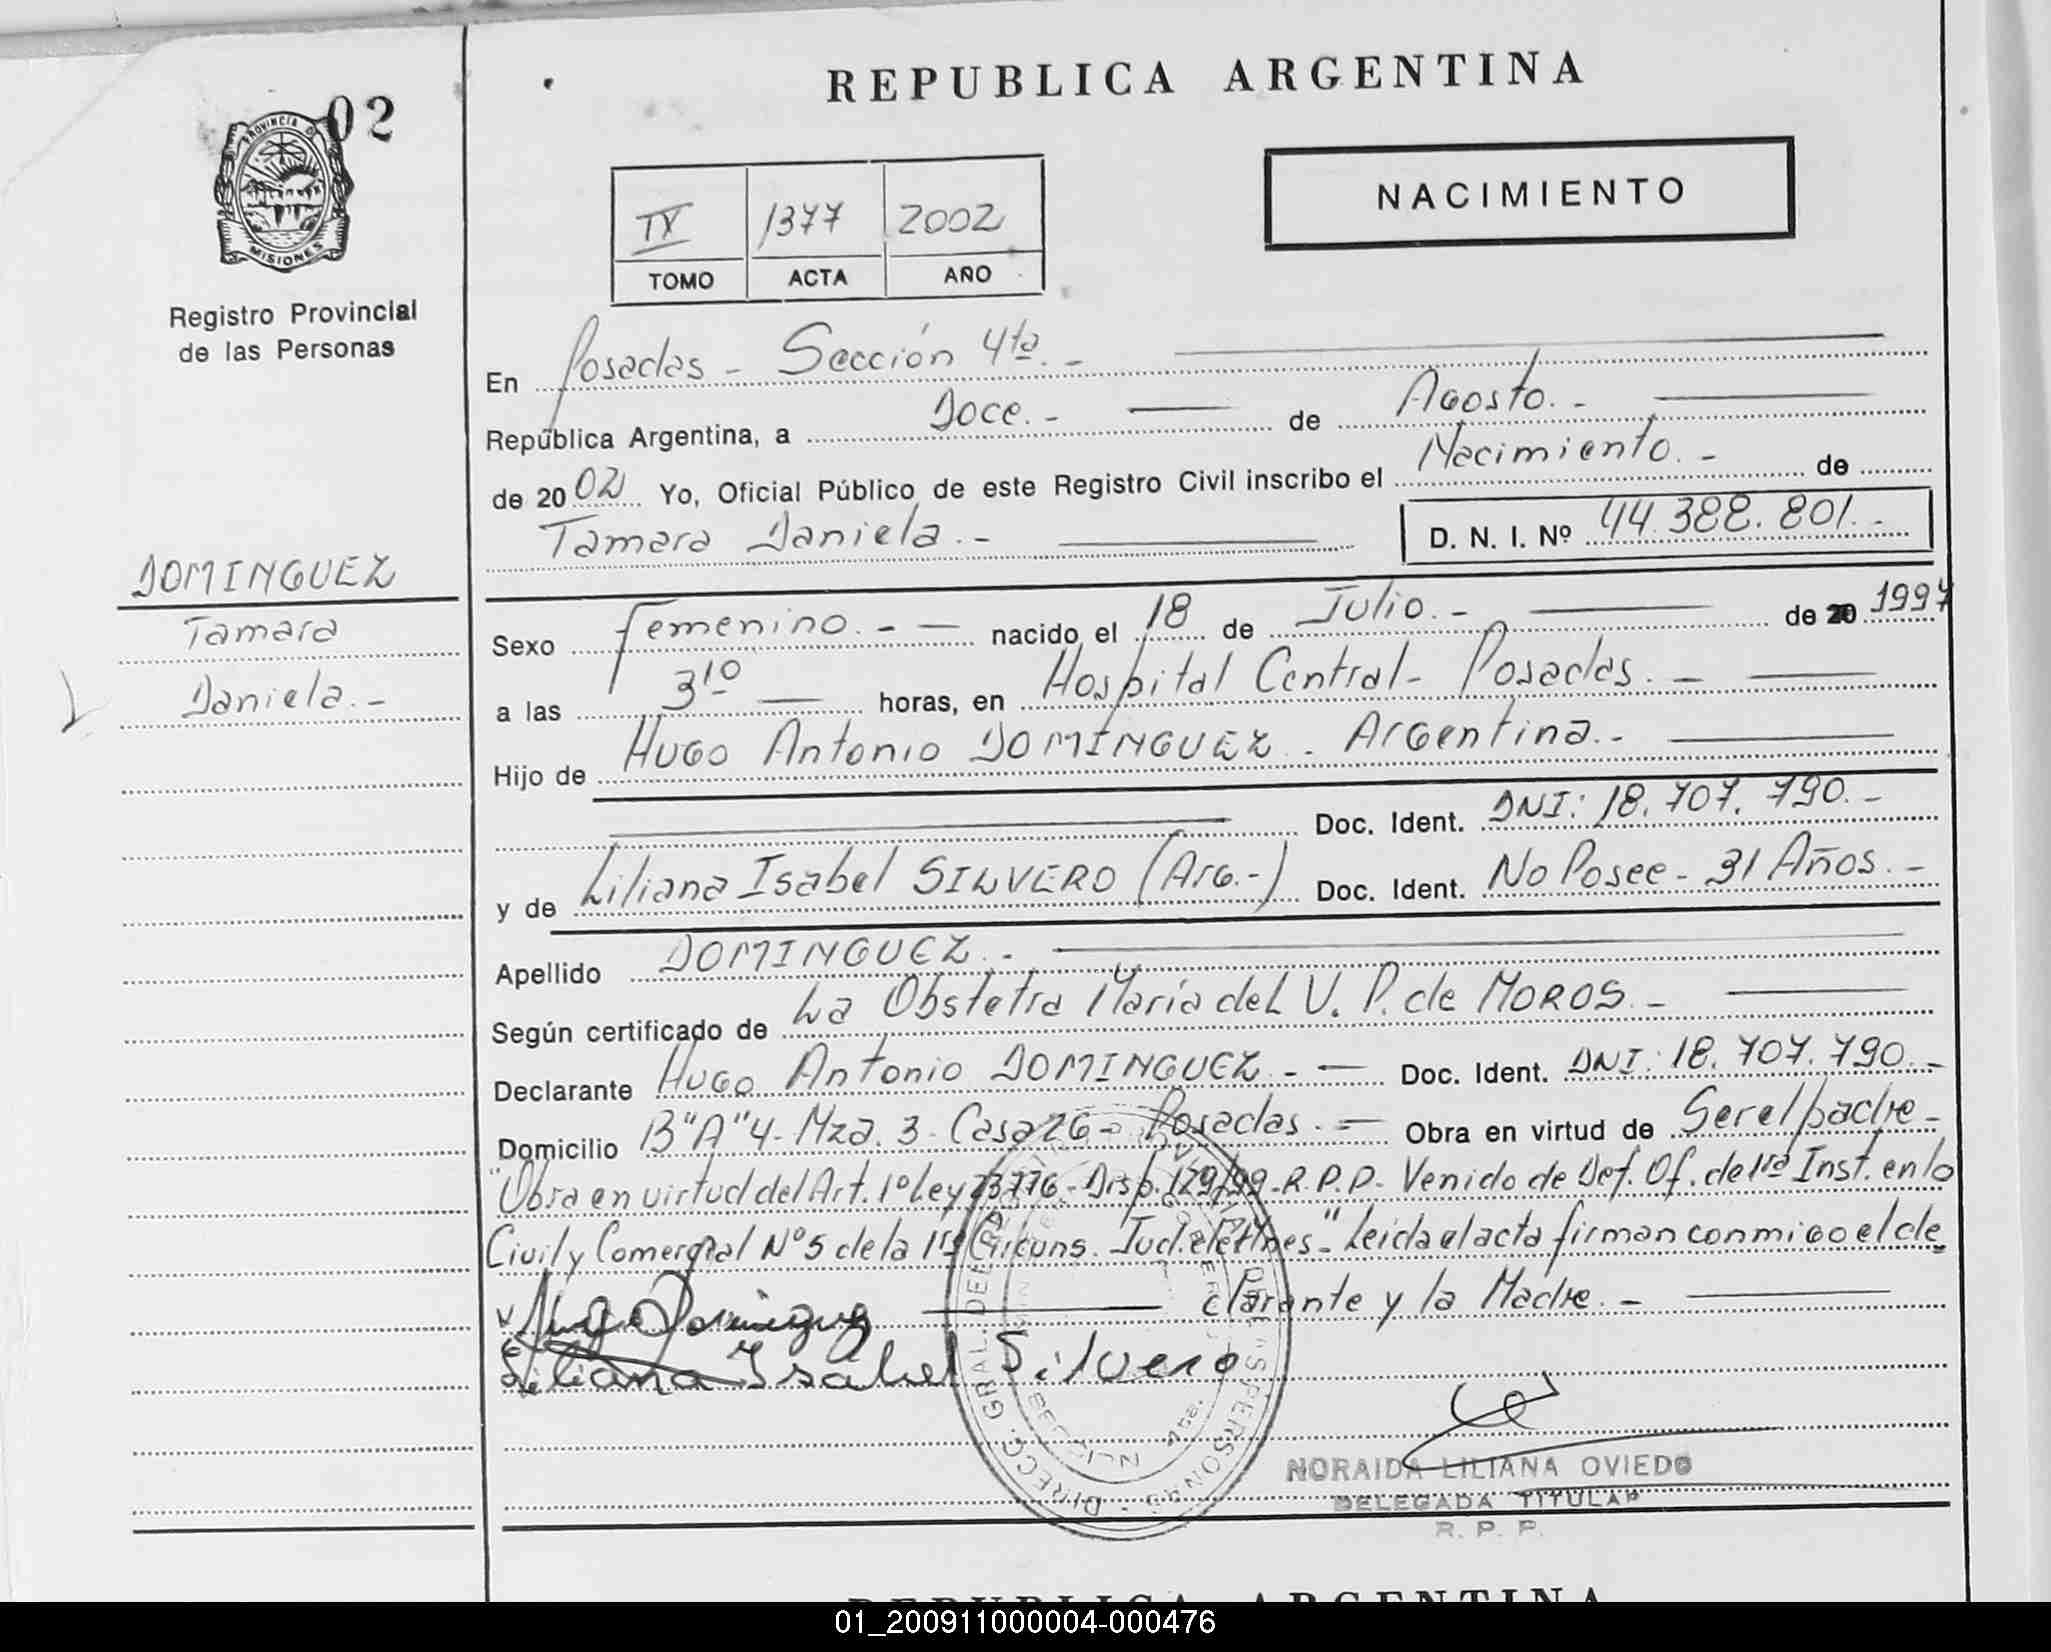 02
PROVINCIA D
MISIONES
Registro Provincial
de las Personas
DOMINGUEZ
Tamara
Daniela.-
REPUBLICA ARGENTINA
NACIMIENTO
IV 1377 2002
TOMO ACTA AÑO
En Posadas - Sección 4ta.-
República Argentina, a Doce.- de Agosto.-
de 2002 Yo, Oficial Público de este Registro Civil inscribo el Nacimiento.- de
Tamara Daniela.- D. N. I. Nº 44.388.801.-
Sexo Femenino.- nacido el 18 de Julio.- de 20 1997
a las 3:10 horas, en Hospital Central - Posadas.-
Hijo de Hugo Antonio DOMINGUEZ - Argentina.-
Doc. Ident. DNI: 18.707.790.-
y de Liliana Isabel SILVERO (Arg.-) Doc. Ident. No Posee - 31 Años.-
Apellido DOMINGUEZ.-
Según certificado de La Obstetra María del V. P. de MOROS.-
Declarante Hugo Antonio DOMINGUEZ.- Doc. Ident. DNI: 18.707.790.-
Domicilio B"A"4- Mza. 3- Casa 26- Posadas.- Obra en virtud de Ser el padre-
"Obra en virtud del Art. 1º Ley 23776- Disp. 129/99-R.P.P- Venido de Def. Of. de 1ra Inst. en lo
Civil y Comercial Nº5 de la 1ra Circuns. Jud. de Mnes"- Leída el acta firman conmigo el de
clarante y la Madre.-
Hugo Dominguez
Liliana Isabel Silvero
DIRECC. GRAL. DEL PERSONAS
SECCION 4ta.
NORAIDA LILIANA OVIEDO
DELEGADA TITULAR
R. P. P.
REPUBLICA ARGENTINA
01_200911000004-000476